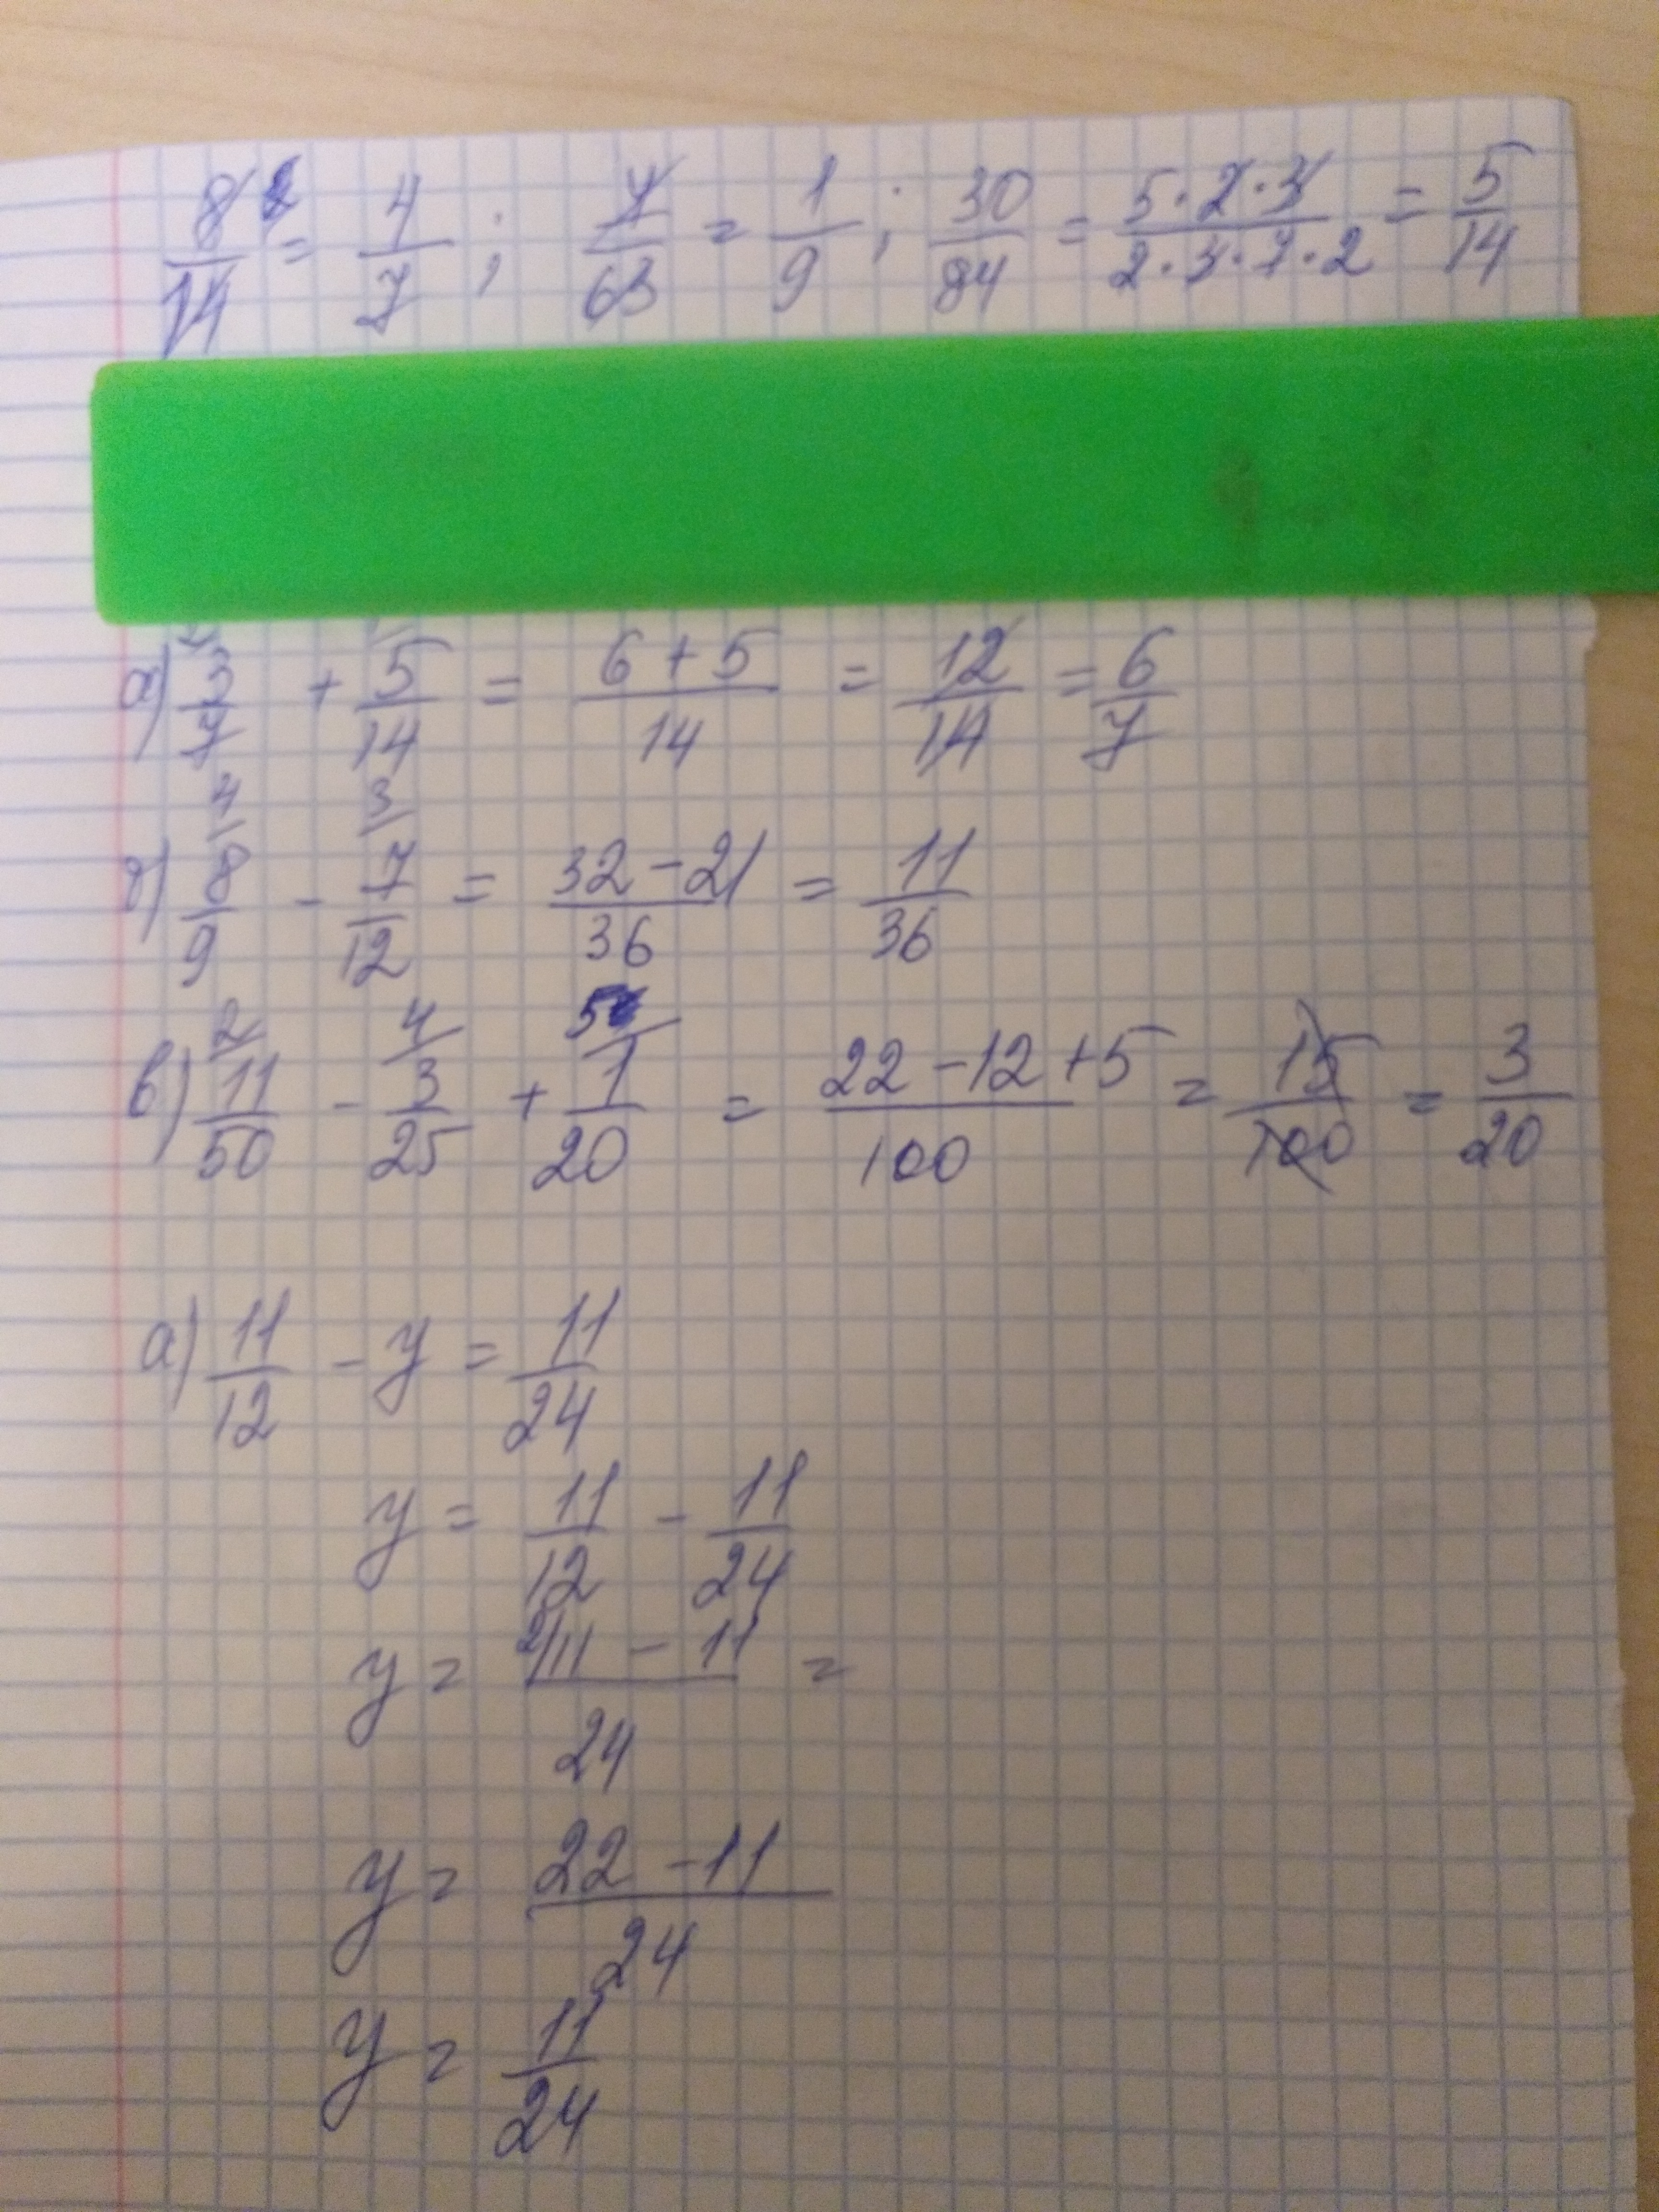 8/14 = 4/7 ; 7/63 = 1/9 ; 30/84 = 5·2·3/2·3·7·2 = 5/14
а) 3/7 + 5/14 = 6+5/14 = 12/14 = 6/7
4 3
б) 8/9 - 7/12 = 32-21/36 = 11/36
2 4 5
в) 11/50 - 3/25 + 1/20 = 22-12+5/100 = 15/100 = 3/20
а) 11/12 - y = 11/24
y = 11/12 - 11/24
y = 2/11 - 11/24 =
y = 22-11/24
y = 11/24